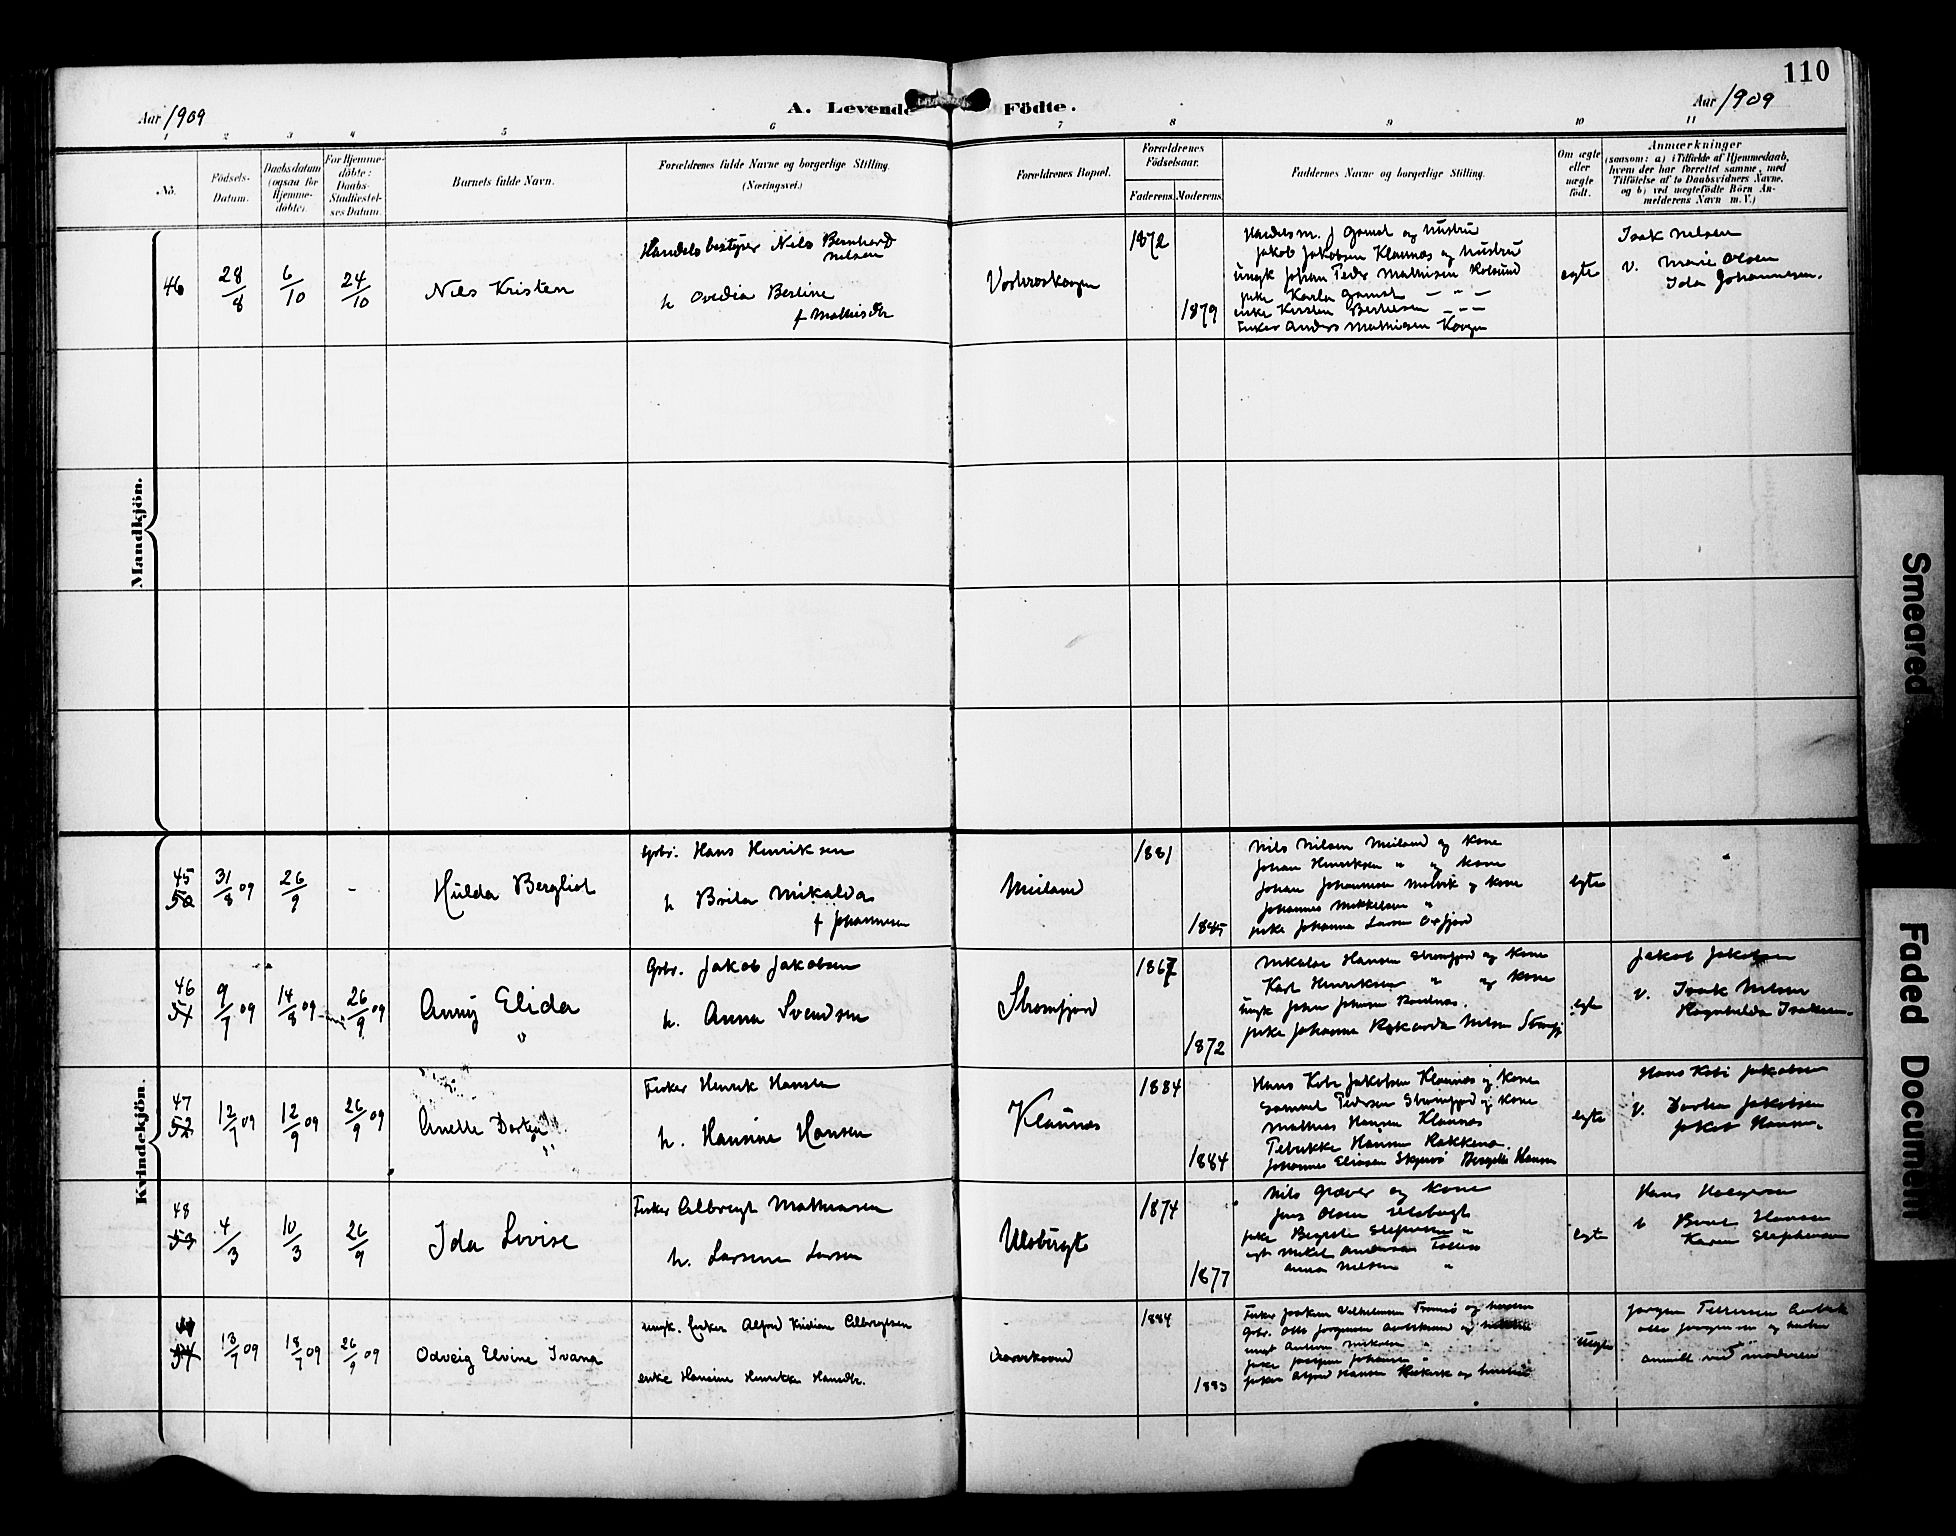 110
Aar 1909
A. Levende Födte.
Aar 1909
1 2 3 4 5 6 7 8 9 10 11
No.
Födsels-
Datum.
Daabsdatum
(ogsaa for
Hjemme-
döbte).
For Hjemme-
döbte:
Daabs-
Stadfæstel-
ses Datum.
Barnets fulde Navn.
Forældrenes fulde Navne og borgerlige Stilling.
(Næringsvei.)
Forældrenes Bopæl.
Forældrenes
Födselsaar.
Faderens Moderens
Faddernes Navne og borgerlige Stilling.
Om ægte
eller
uægte
født.
Anmærkninger
(saasom: a) i Tilfælde af Hjemmedaab,
hvem der har forrettet samme, med
Tilföielse af to Daabsvidners Navne,
og b) ved uegtefödte Börn An-
melderens Navn m. V.)
Mandkjön.
46
28/8
6/10
24/10
Nils Kristen
Handelsbestyrer Nils Bernhard
Nilsen
h Ovedia Bertine
f Mathisdtr
1872
1879
Handelsm. J Gamst og hustru
Jakob Jakobsen Klaunæs og hustru
ungk Johan Peder Mathisen
pike Karla Gamst — " —
Fisker Anders Mathisen
egte
Isak Nilsen
v. Marie Olsen
Ida Johannesen.
Kvindekjön.
45
50
31/8 09
26/9
-
Hulda Bergliot
Gbr. Hans Henriksen
h Brita Mikalda
f Johannesen
Meiland
1881
1845
Nils Nilsen Meiland og kone
Johan Henriksen " og kone
Johan Johannesen Molvik og kone
Johannes Mikkelsen "
pike Johanna Larsen Oxfjord
egte
46
51
9/7 09
14/8 09
26/9 09
Anny Elida
Gbr. Jakob Jakobsen
h. Anna Svendsen
Straumfjord
1867
1872
Nikolai Hansen Straumfjord og kone
Karl Henriksen " og kone
ungk Johan Johnsen
pike Johanna Rikarda Nilsen
egte
Jakob Jakobsen
v. Isak Nilsen
Ragnhilda Isaksen.
47
52
12/7 09
12/9 09
26/9 09
Anette Dortea
Fisker Henrik Hansen
h. Hansine Hansen
Klaunæs
1884
1884
Hans Kobi Jakobsen Klaunæs og kone
Samuel Pedersen Straumfjord og kone
Mathias Hansen Klaunæs
Petrikke Hansen Rakkenæs
Johannes Eliasen Skjervö Bergitte Hansen
egte
Hans Kobi Jakobsen
v. Dortea Jakobsen
Jakob Hansen.
48
53
4/3
10/3
26/9
Ida Lovise
Fisker Albregt Mathiasen
h. Larsine Larsen
Ulobugt
1874
1877
Nils Græver og kone
Jens Olsen Ulobugt
pike Bergitte Stephensen "
ugk Mikal Andersen
Anna Nilsen "
egte
Hans Holgersen
v Berit Hansen
Karen Stephensen
49
54
13/7 09
18/7 09
26/9 09
Odveig Elvine Ivana
ungk. fisker Alfred Kristian Albregtsen
enke Hansine Henrikke Hansdtr.
1884
1883
Fisker Joakim Vilhelmsen Tromsö og hustru
Gbr. Otto Jørgensen og hustru
ungk Anton Mikalsen "
pike Jørgine Johansen "
fisker Alfred Hansen og hustru
uegte
Jørgen Pettersen
Otto Jørgensen og hustru
anmeldt ved moderen
Smeared
Faded Document